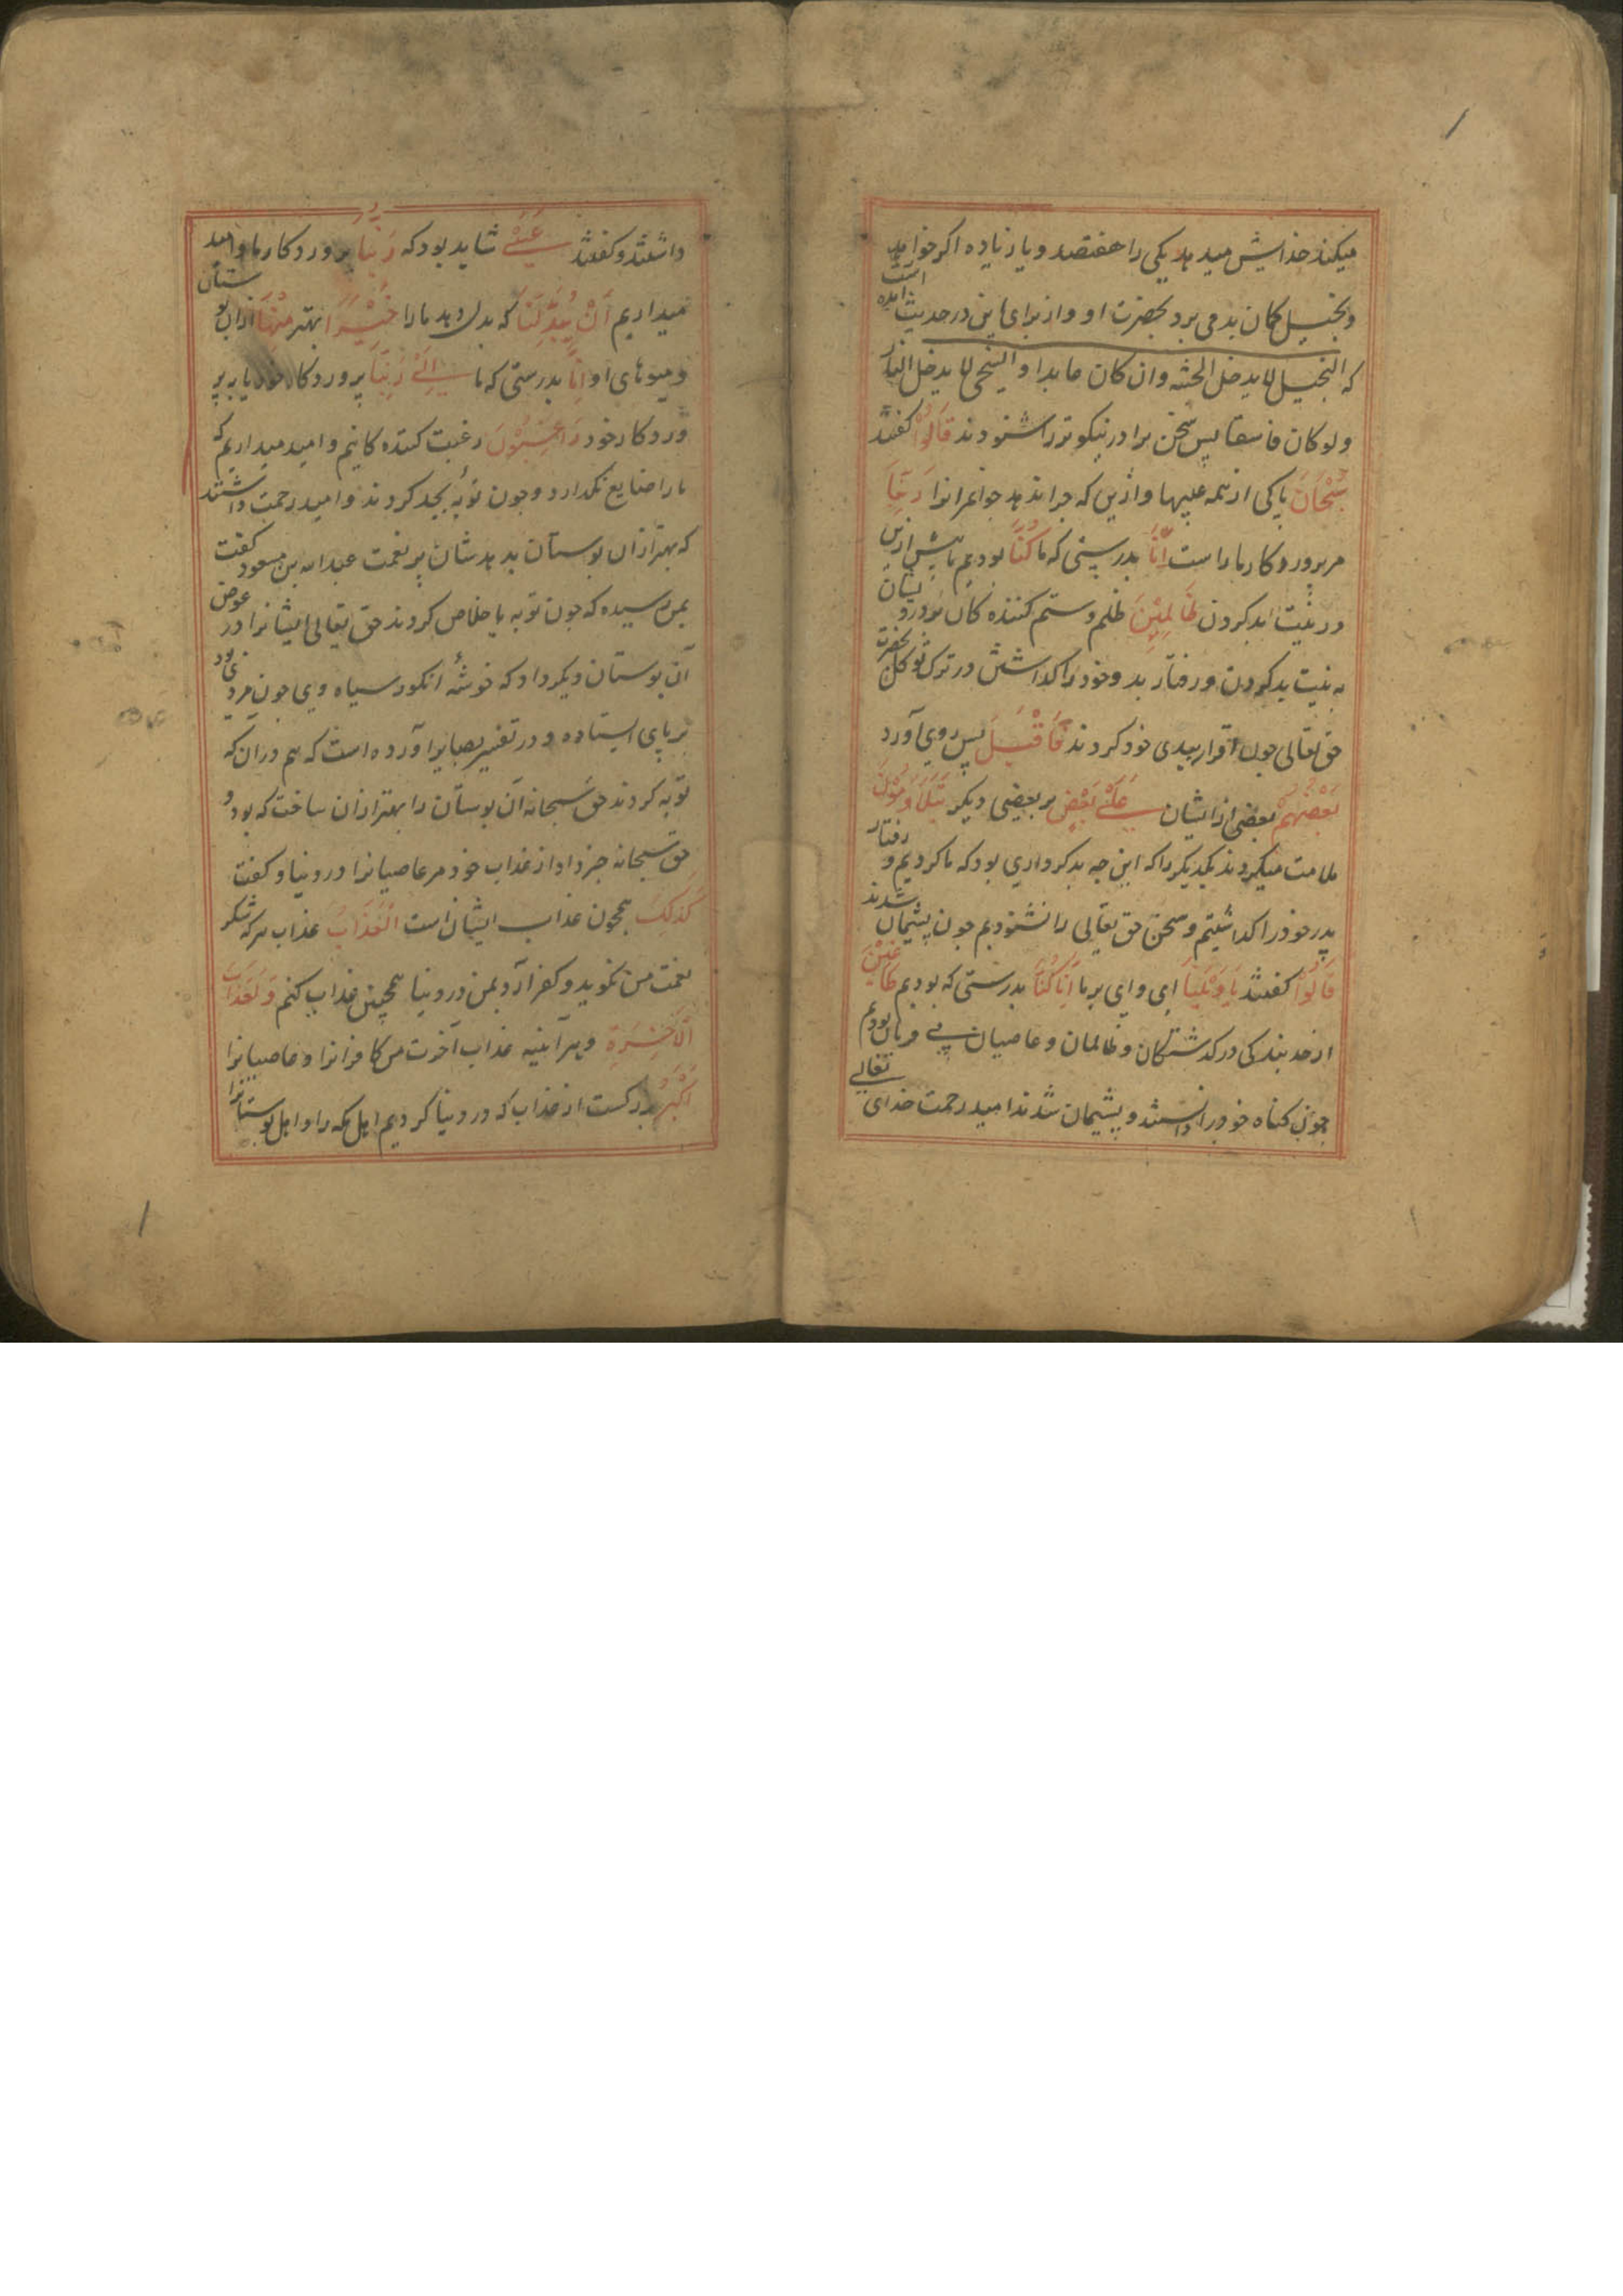 میکند خدایش میدهد یکی را هفتصد و یا زیاده اکر خواهد
و بخیل کمان بد می برد بحضرت او و از برای این در حدیث آمده است
که البخیل لا یدخل الجنه وان کان عابدا و السخی لا یدخل النار
ولو کان فاسقا پس سخن برادر نیکوتر را شنودند قَالُوْا کفتند
سُبْحَانَ پاکی از همه عیبها و ازین که جزا ندهد جوانمرانرا رَبِّنَا
مر پروردکار ما راست اِنَّا بدرستی که ما کُنَّا بودیم ما پیش ازین
در نیت بد کردن ظَالِمِیْنَ ظلم و ستم کننده کان بودیم
به نیت بد کردن و رفتار بد و خود را کذاشتن در ترک توکل بحضرت
حق تعالی جون اقرار ببدی خود کردند فَاَقْبَلَ پس روی آورد
بَعْضُهُمْ بعضی از ایشان عَلٰی بَعْضٍ بر بعضی دیکر یَتَلَاوَمُوْنَ
ملامت میکردند یکدیکر را که این چه بد کرداری بود که ما کردیم و رفتار
پدر خود را کذاشتیم و سخن حق تعالی را نشنودیم جون پشیمان شدند
قَالُوْا کفتند یَا وَیْلَنَا ای وای بر ما اِنَّا کُنَّا بدرستی که بودیم طَاغِیْنَ
از حد بندکی در کذشتکان و ظالمان و عاصیان بی فرمان بودیم
جون کناه خود را دانستند و پشیمان شدند امید رحمت خدای تعالی
داشتند و کفتند عَسٰی شاید بود که رَبُّنَا پروردکار ما و امید
میداریم اَنْ یُبْدِلَنَا که بدل دهد ما را خَیْرًا بهتر مِنْهَا ازان بوستان
و میوهای او اِنَّا بدرستی که ما اِلٰی رَبِّنَا پروردکار خود
وردکار خود رَاغِبُوْنَ رغبت کننده کانیم و امید میداریم که
ما را ضایع نکدارد و جون توبه بجد کردند و امید رحمت داشتند
که بهتر ازان بوستان بدهدشان پر نعمت عبدالله بن مسعود کفت
بمن رسیده که جون توبه باخلاص کردند حق تعالی ایشانرا در عوض
آن بوستان دیکر داد که خوشه انکور سیاه وی جون مردی بود
بر پای ایستاده و در تفسیر بصایر آورده است که هم دران که
توبه کردند حق سبحانه آن بوستان را بهتر ازان ساخت که بود و
حق سبحانه خبر داد از عذاب خود مر عاصیانرا در دنیا و کفت
کَذٰلِکَ همچون عذاب ایشان است الْعَذَابُ عذاب هر که شکر
نعمت من نکوید و کفر آرد بمن در دنیا همچنین عذاب کنم وَلَعَذَابُ
الْاٰخِرَةِ و هر آینه عذاب آخرت من کافرانرا و عاصیانرا
اَکْبَرُ بزرکست از عذاب که در دنیا کردیم اهل مکه را و اهل بوستانرا